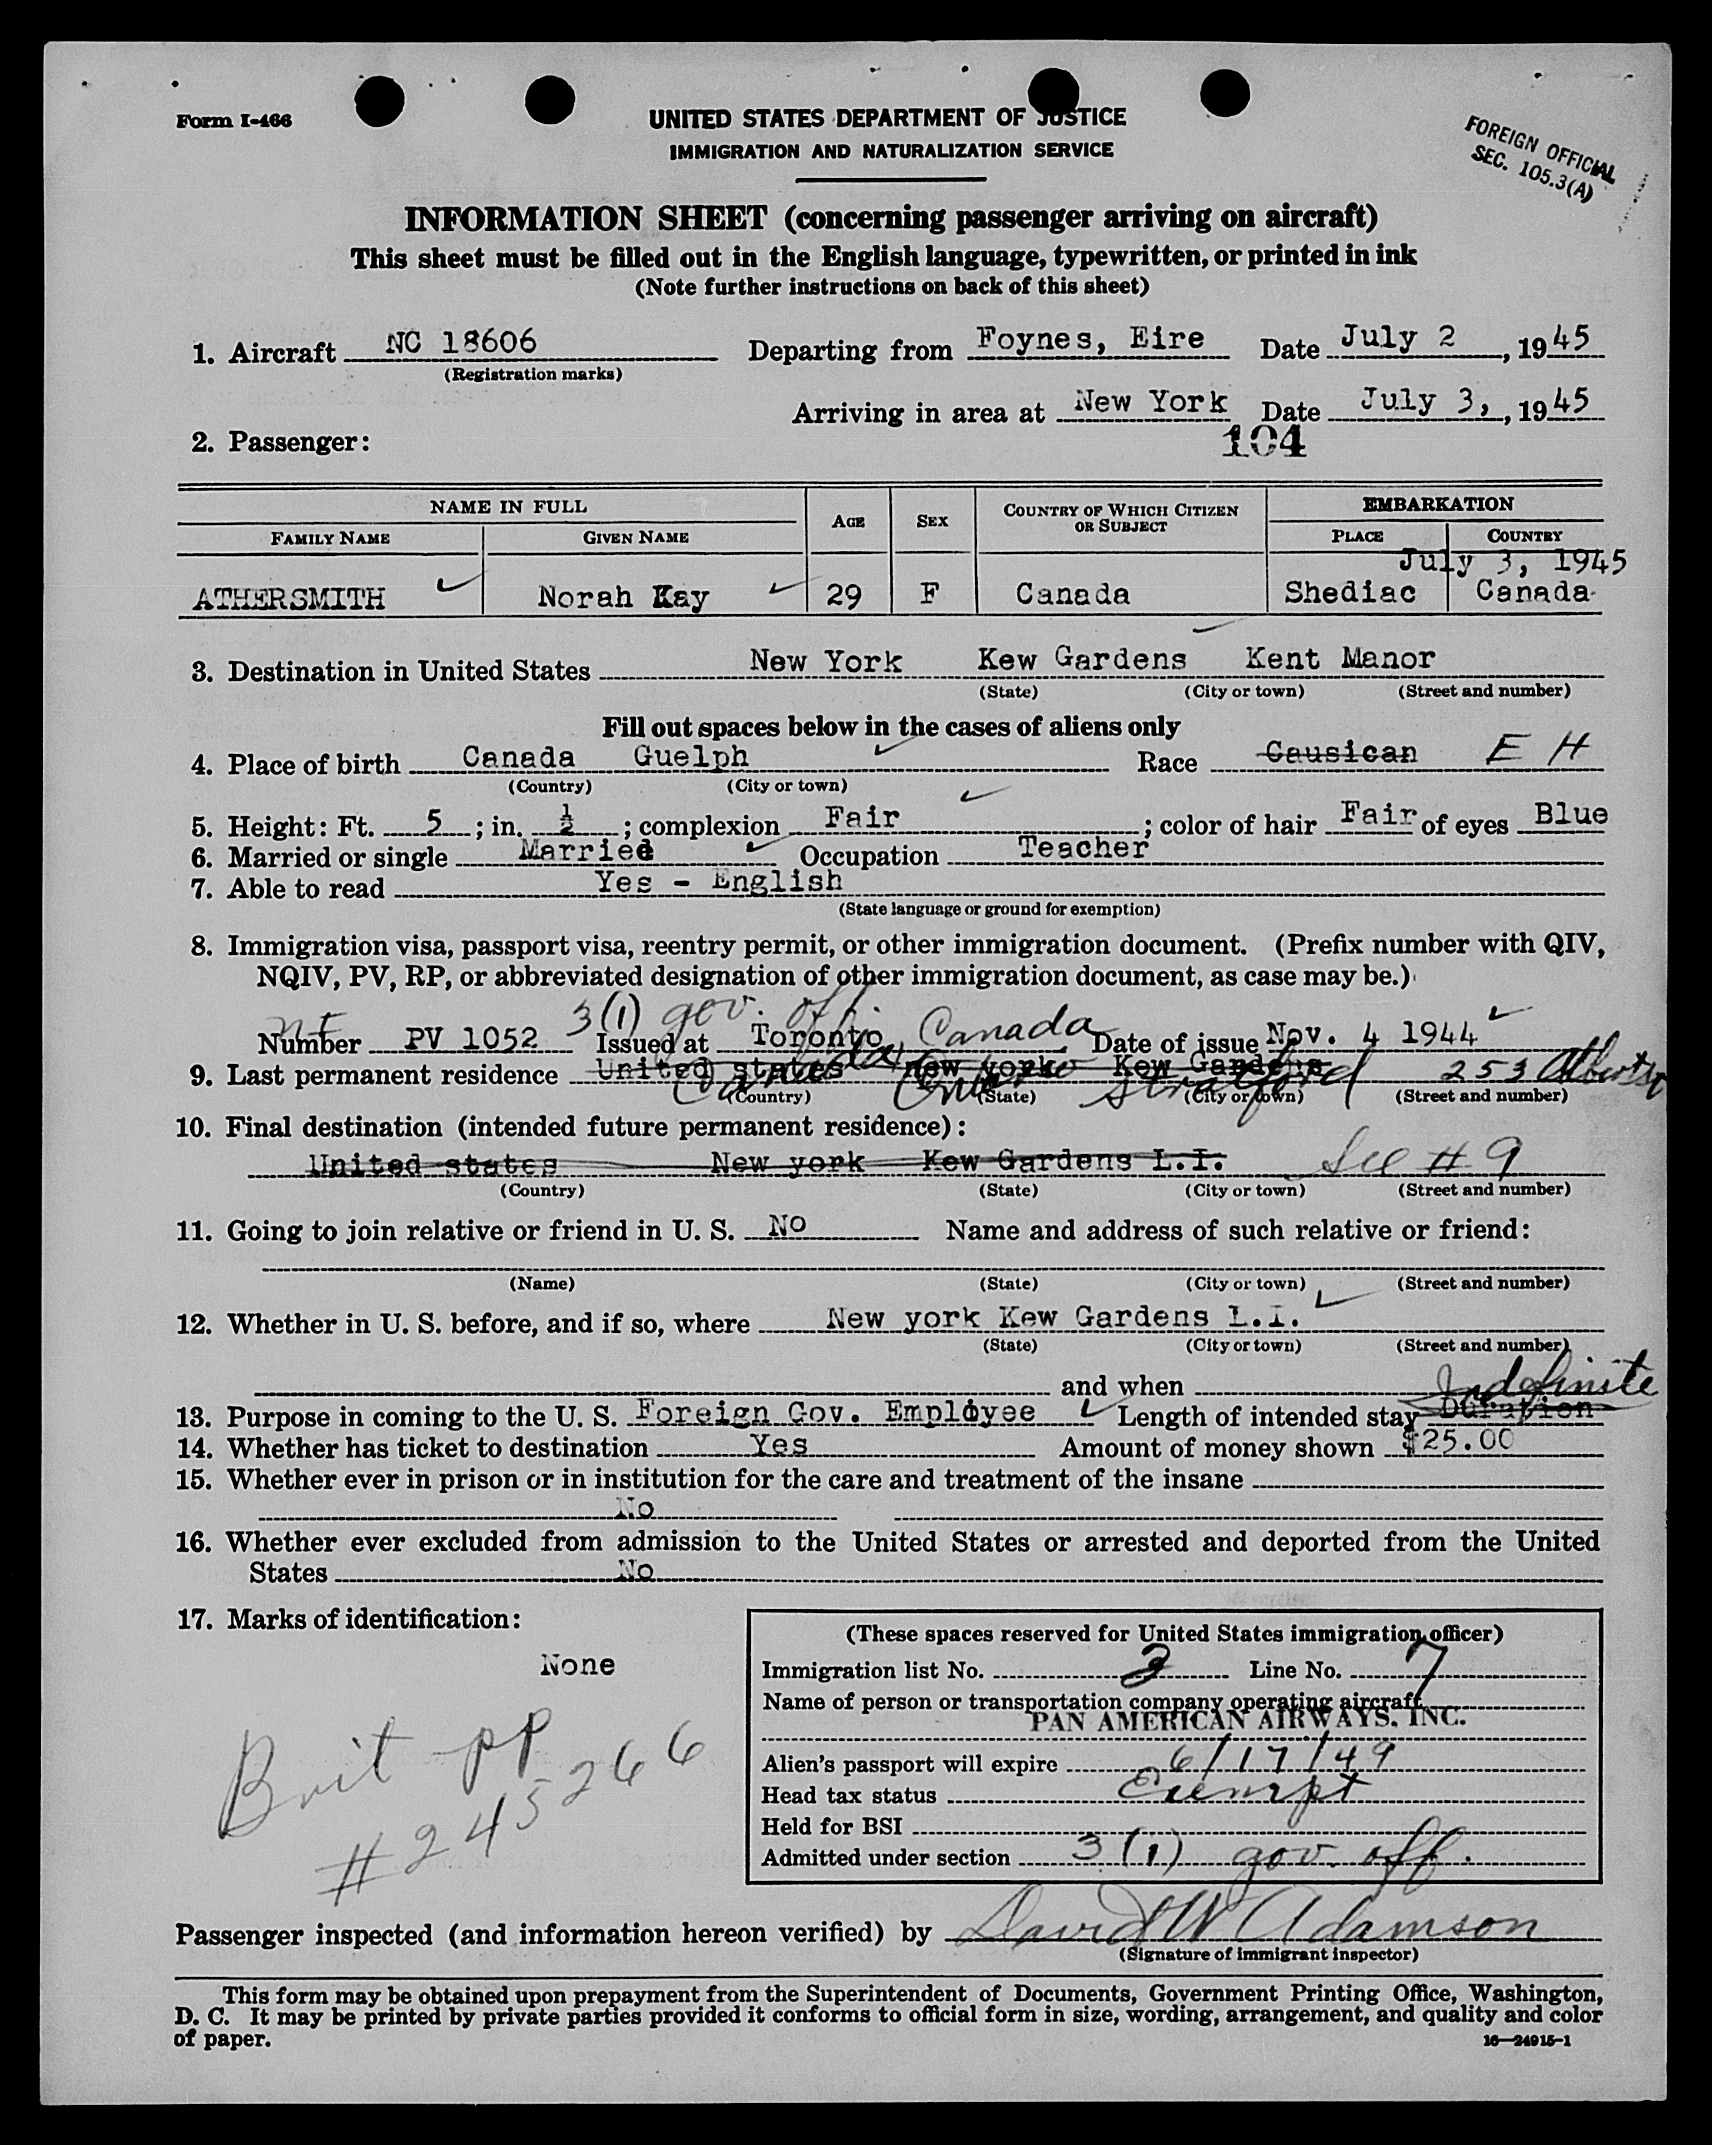 Form I-466
UNITED STATES DEPARTMENT OF JUSTICE
IMMIGRATION AND NATURALIZATION SERVICE
FOREIGN OFFICIAL
SEC. 105.3(A)
INFORMATION SHEET (concerning passenger arriving on aircraft)
This sheet must be filled out in the English language, typewritten, or printed in ink
(Note further instructions on back of this sheet)
1. Aircraft NC 18606 Departing from Foynes, Eire Date July 2, 1945
(Registration marks)
Arriving in area at New York Date July 3, , 1945
2. Passenger: 104
NAME IN FULL AGE SEX COUNTRY OF WHICH CITIZEN OR SUBJECT EMBARKATION
FAMILY NAME GIVEN NAME PLACE COUNTRY
July 3, 1945
ATHERSMITH Norah Kay 29 F Canada Shediac Canada
3. Destination in United States New York Kew Gardens Kent Manor
(State) (City or town) (Street and number)
Fill out spaces below in the cases of aliens only
4. Place of birth Canada Guelph Race Causican E H
(Country) (City or town)
5. Height: Ft. 5 ; in. ½ ; complexion Fair ; color of hair Fair of eyes Blue
6. Married or single Married Occupation Teacher
7. Able to read Yes - English
(State language or ground for exemption)
8. Immigration visa, passport visa, reentry permit, or other immigration document. (Prefix number with QIV,
NQIV, PV, RP, or abbreviated designation of other immigration document, as case may be.)
3(1) gov. off.
Number PV 1052 Issued at Toronto, Canada Date of issue Nov. 4 1944
9. Last permanent residence United states New yorko Kew Gardens 253 Albert St
Canada Ontario Stratford
(Country) (State) (City or town) (Street and number)
10. Final destination (intended future permanent residence):
United states New york Kew Gardens L.I. See # 9
(Country) (State) (City or town) (Street and number)
11. Going to join relative or friend in U. S. No Name and address of such relative or friend:
(Name) (State) (City or town) (Street and number)
12. Whether in U. S. before, and if so, where New york Kew Gardens L.I.
(State) (City or town) (Street and number)
and when
Indefinite
13. Purpose in coming to the U. S. Foreign Gov. Employee Length of intended stay Duration
14. Whether has ticket to destination Yes Amount of money shown $25.00
15. Whether ever in prison or in institution for the care and treatment of the insane
No
16. Whether ever excluded from admission to the United States or arrested and deported from the United
States No
17. Marks of identification:
None
Brit pp
#245266
(These spaces reserved for United States immigration officer)
Immigration list No. 3 Line No. 7
Name of person or transportation company operating aircraft
PAN AMERICAN AIRWAYS, INC.
Alien's passport will expire 6/17/49
Head tax status Exempt
Held for BSI
Admitted under section 3(1) gov. off.
Passenger inspected (and information hereon verified) by David W Adamson
(Signature of immigrant inspector)
This form may be obtained upon prepayment from the Superintendent of Documents, Government Printing Office, Washington,
D. C. It may be printed by private parties provided it conforms to official form in size, wording, arrangement, and quality and color
of paper.
16—24915-1